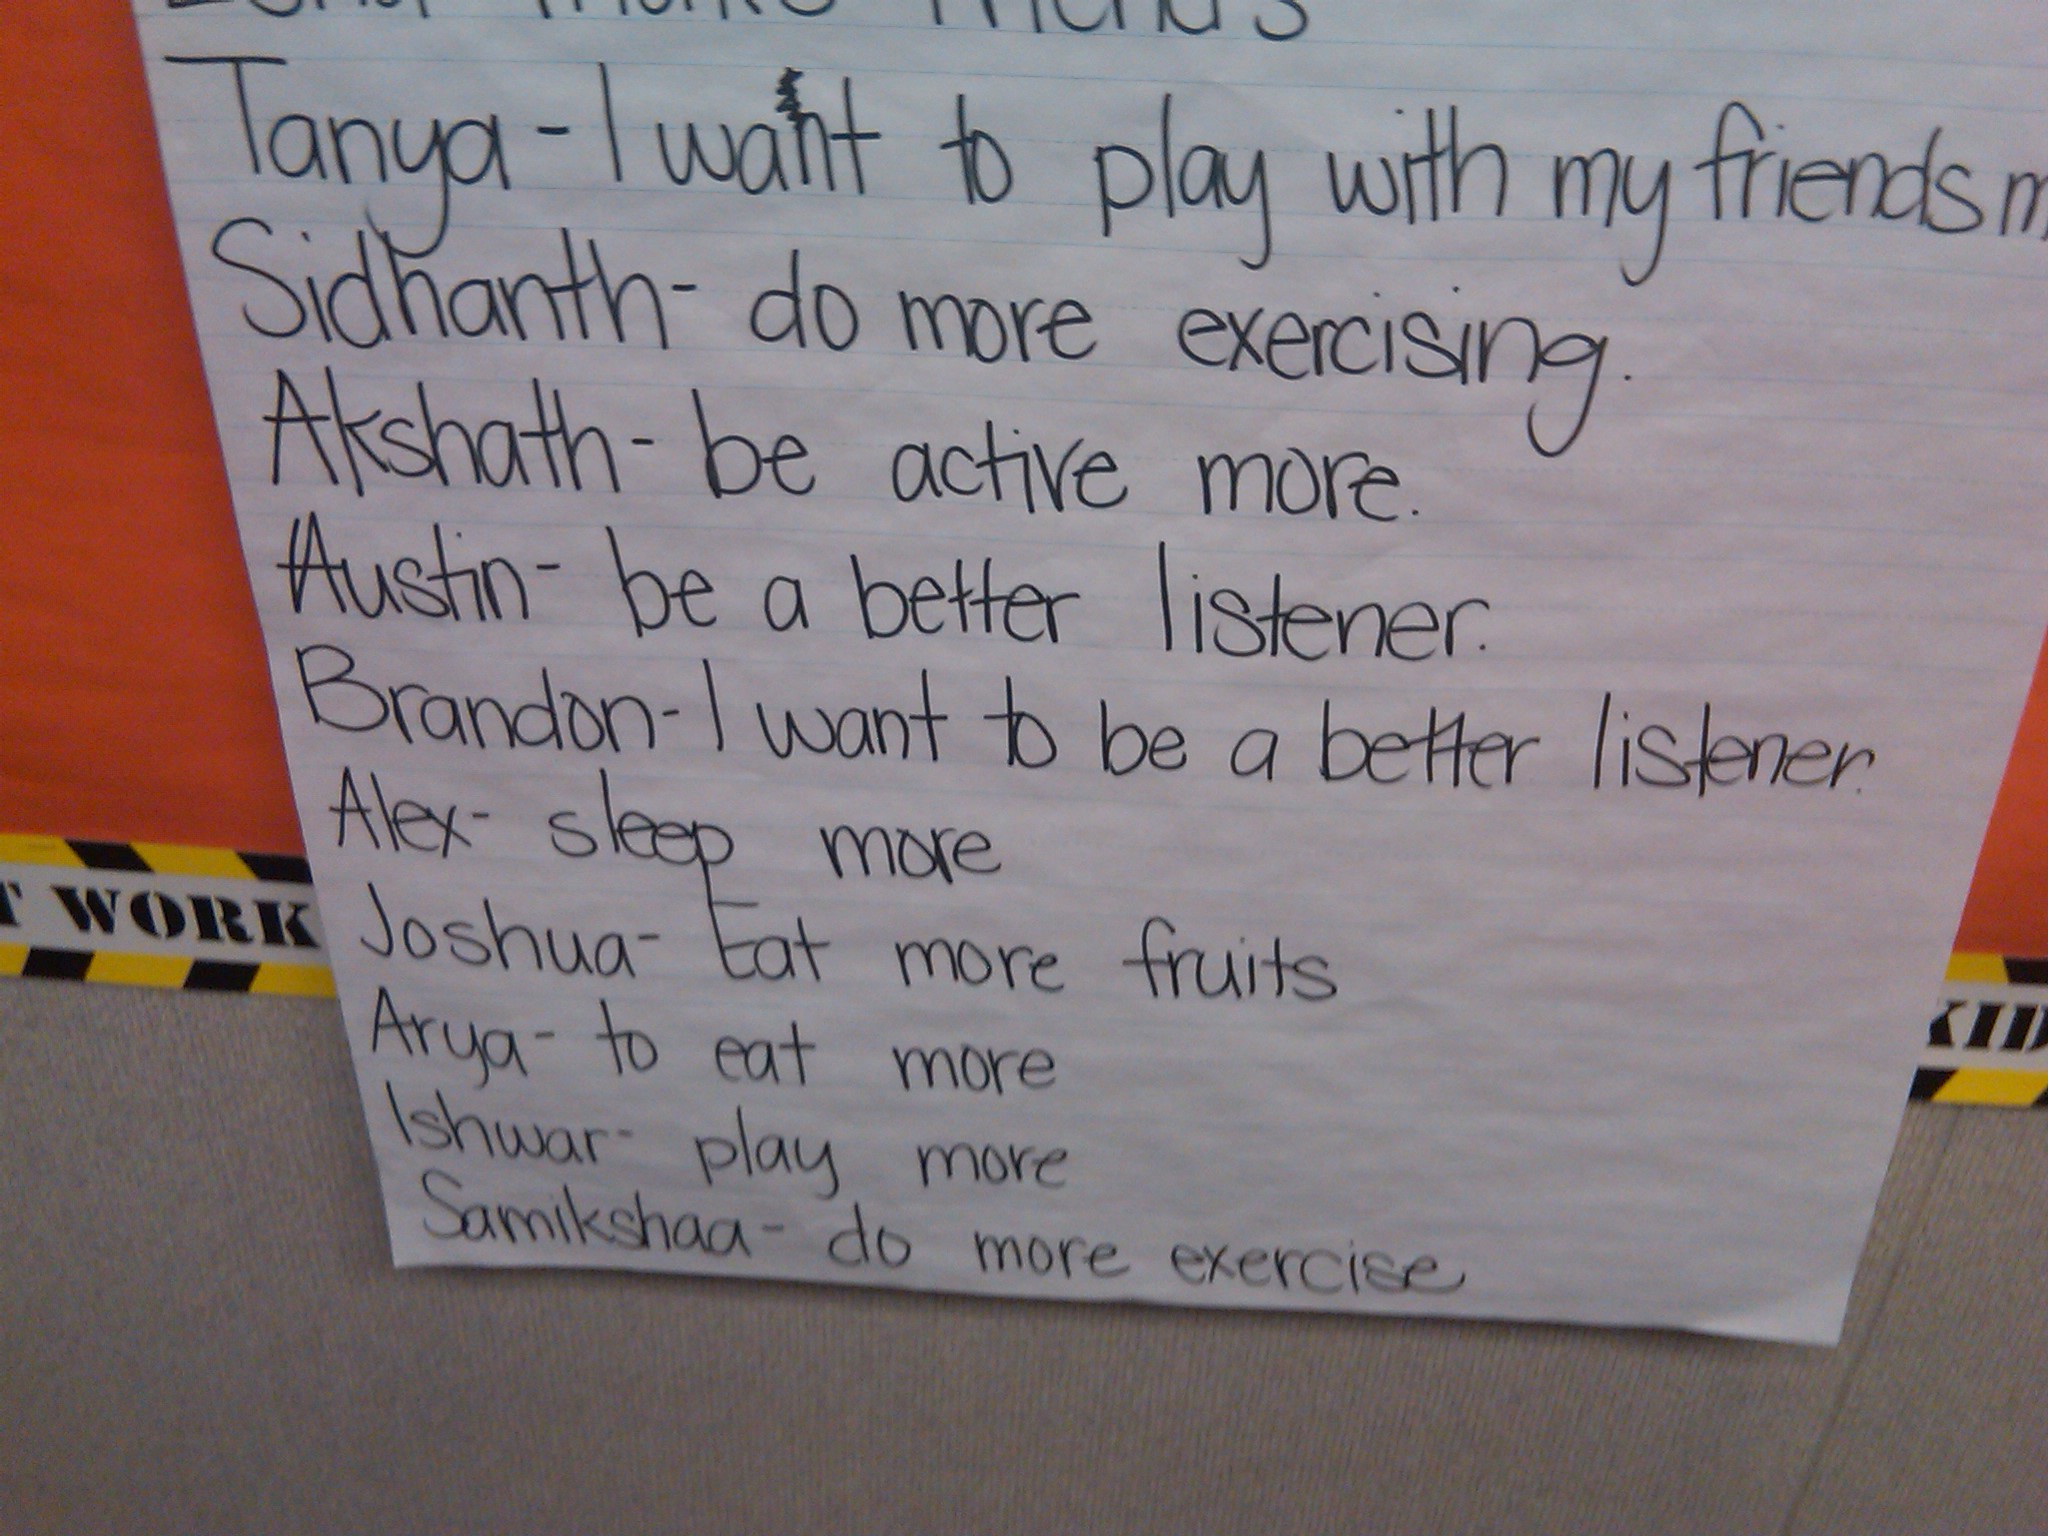 friends
Tanya - I want to play with my friends
Sidhanth - do more exercising.
Akshath - be active more.
Austin - be a better listener.
Brandon - I want to be a better listener.
Alex - sleep more
Joshua - Eat more fruits
Arya - to eat more
Ishwar - play more
Samikshaa - do more exercise
T WORK
KID